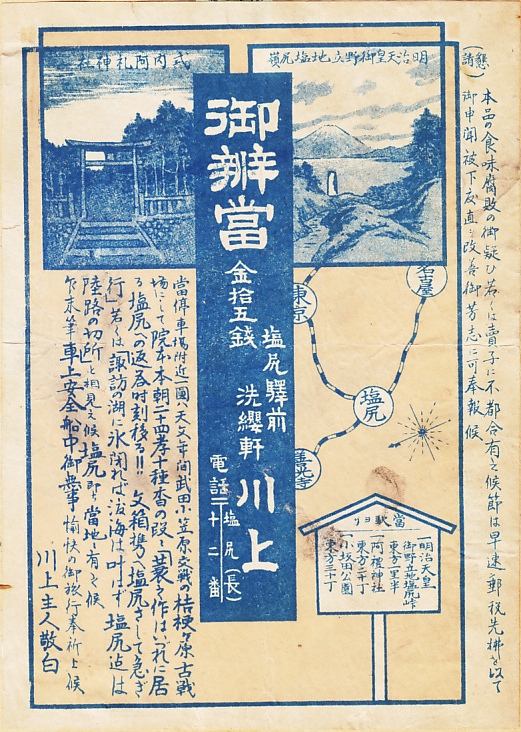 (懇請)
本品の食味腐敗の御疑ひ若くは賣子に不都合有之候節は早速郵税先拂を以て
御申聞被下度直ニ改善御芳志に可奉報候
明治天皇御野立地塩尻嶺
式内阿礼神社
御辨當
金拾五銭
塩尻驛前
洗纓軒
川上
電話塩尻(長)二十二番
名古屋
東京
塩尻
善光寺
當駅ヨリ
明治天皇
御野立地塩尻峠
東方一里半
一阿禮神社
東方二十丁
一小坂田公園
東方三十丁
當停車場附近一圓ハ天文年間武田小笠原交戦の桔梗ヶ原古戦
場にして院本本朝二四孝十種香の段
塩尻への返吞時刻移る!!文箱携へ塩尻さして急ぎ
行」若くは諏訪の湖に氷閉れば渡海は叶はず塩尻迄は
陸路の切所と相見え候塩尻即ち當地ニ有之候
乍末筆車上安全船中御無事愉快の御旅行奉祈上候
川上主人敬白